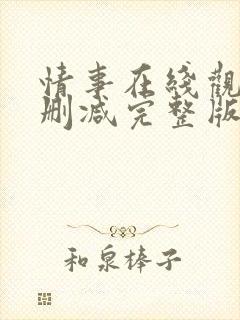 情事在线觀
删减完整版
和泉棒子